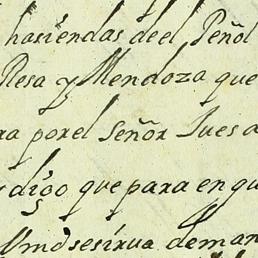 hasiendas deel Peñol
Resa y Mendoza que
ra porel Señor Jues a
digo que para en qu
Vmd sesirua deman